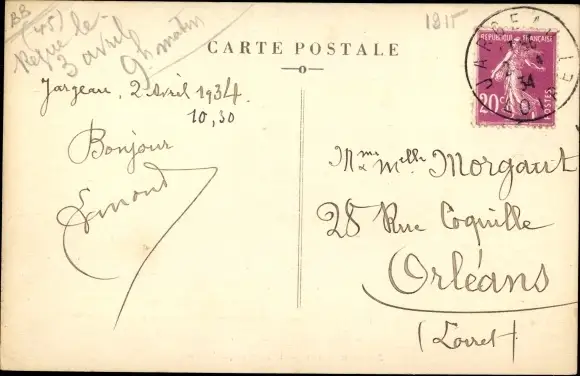 BB
(45)
Reçue le
3 avril
9h matin
1815
CARTE POSTALE
REPUBLIQUE FRANÇAISE
20c
POSTES
JARGEAU
2 - 4
34
LOIRET
Jargeau, 2 Avril 1934.
10,30
Bonjour
Mme & Melle Morgaut
28 Rue Coquille
Orléans
(Loiret)